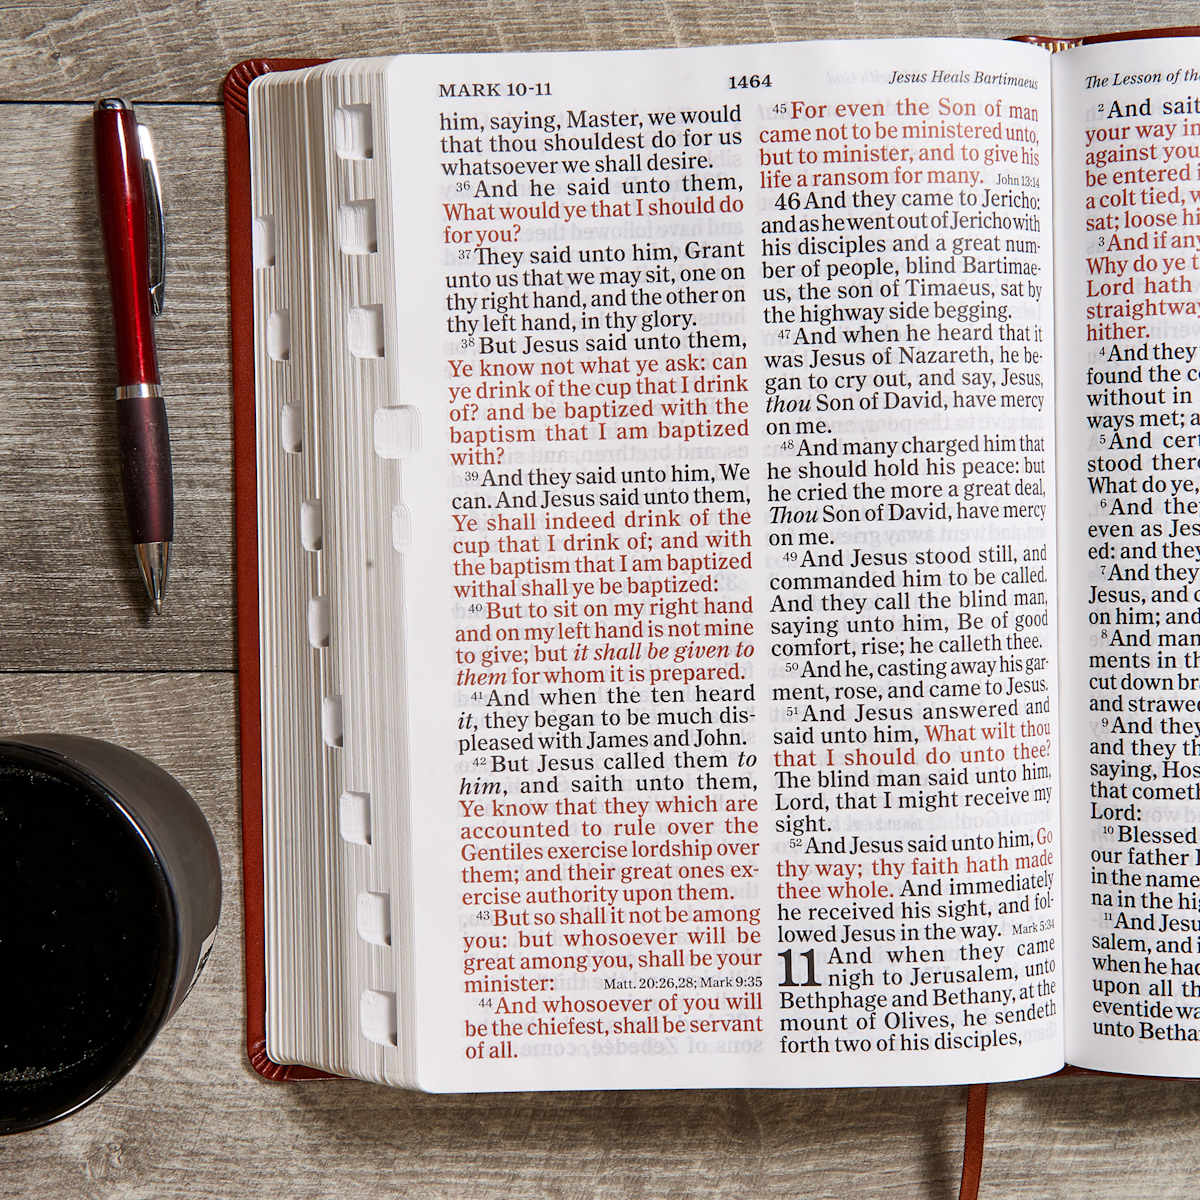 MARK 10-11
1464
Jesus Heals Bartimaeus
him, saying, Master, we would
that thou shouldest do for us
whatsoever we shall desire.
36 And he said unto them,
What would ye that I should do
for you?
37 They said unto him, Grant
unto us that we may sit, one on
thy right hand, and the other on
thy left hand, in thy glory.
38 But Jesus said unto them,
Ye know not what ye ask: can
ye drink of the cup that I drink
of? and be baptized with the
baptism that I am baptized
with?
39 And they said unto him, We
can. And Jesus said unto them,
Ye shall indeed drink of the
cup that I drink of; and with
the baptism that I am baptized
withal shall ye be baptized:
40 But to sit on my right hand
and on my left hand is not mine
to give; but it shall be given to
them for whom it is prepared.
41 And when the ten heard
it, they began to be much dis-
pleased with James and John.
42 But Jesus called them to
him, and saith unto them,
Ye know that they which are
accounted to rule over the
Gentiles exercise lordship over
them; and their great ones ex-
ercise authority upon them.
43 But so shall it not be among
you: but whosoever will be
great among you, shall be your
minister: Matt. 20:26,28; Mark 9:35
44 And whosoever of you will
be the chiefest, shall be servant
of all.
45 For even the Son of man
came not to be ministered unto,
but to minister, and to give his
life a ransom for many. John 13:14
46 And they came to Jericho:
and as he went out of Jericho with
his disciples and a great num-
ber of people, blind Bartimae-
us, the son of Timaeus, sat by
the highway side begging.
47 And when he heard that it
was Jesus of Nazareth, he be-
gan to cry out, and say, Jesus,
thou Son of David, have mercy
on me.
48 And many charged him that
he should hold his peace: but
he cried the more a great deal,
Thou Son of David, have mercy
on me.
49 And Jesus stood still, and
commanded him to be called.
And they call the blind man,
saying unto him, Be of good
comfort, rise; he calleth thee.
50 And he, casting away his gar-
ment, rose, and came to Jesus.
51 And Jesus answered and
said unto him, What wilt thou
that I should do unto thee?
The blind man said unto him,
Lord, that I might receive my
sight.
52 And Jesus said unto him, Go
thy way; thy faith hath made
thee whole. And immediately
he received his sight, and fol-
lowed Jesus in the way. Mark 5:34
11 And when they came
nigh to Jerusalem, unto
Bethphage and Bethany, at the
mount of Olives, he sendeth
forth two of his disciples,
The Lesson of the
2 And said
your way in
against you
be entered i
a colt tied, w
sat; loose hi
3 And if any
Why do ye t
Lord hath
straightway
hither.
4 And they
found the co
without in
ways met; a
5 And cert
stood there
What do ye,
6 And the
even as Jes
ed: and they
7 And they
Jesus, and c
on him; and
8 And man
ments in th
cut down bra
and strawed
9 And they
and they th
saying, Hos
that cometh
Lord:
10 Blessed
our father
in the name
na in the hig
11 And Jesu
salem, and i
when he had
upon all th
eventide wa
unto Betha